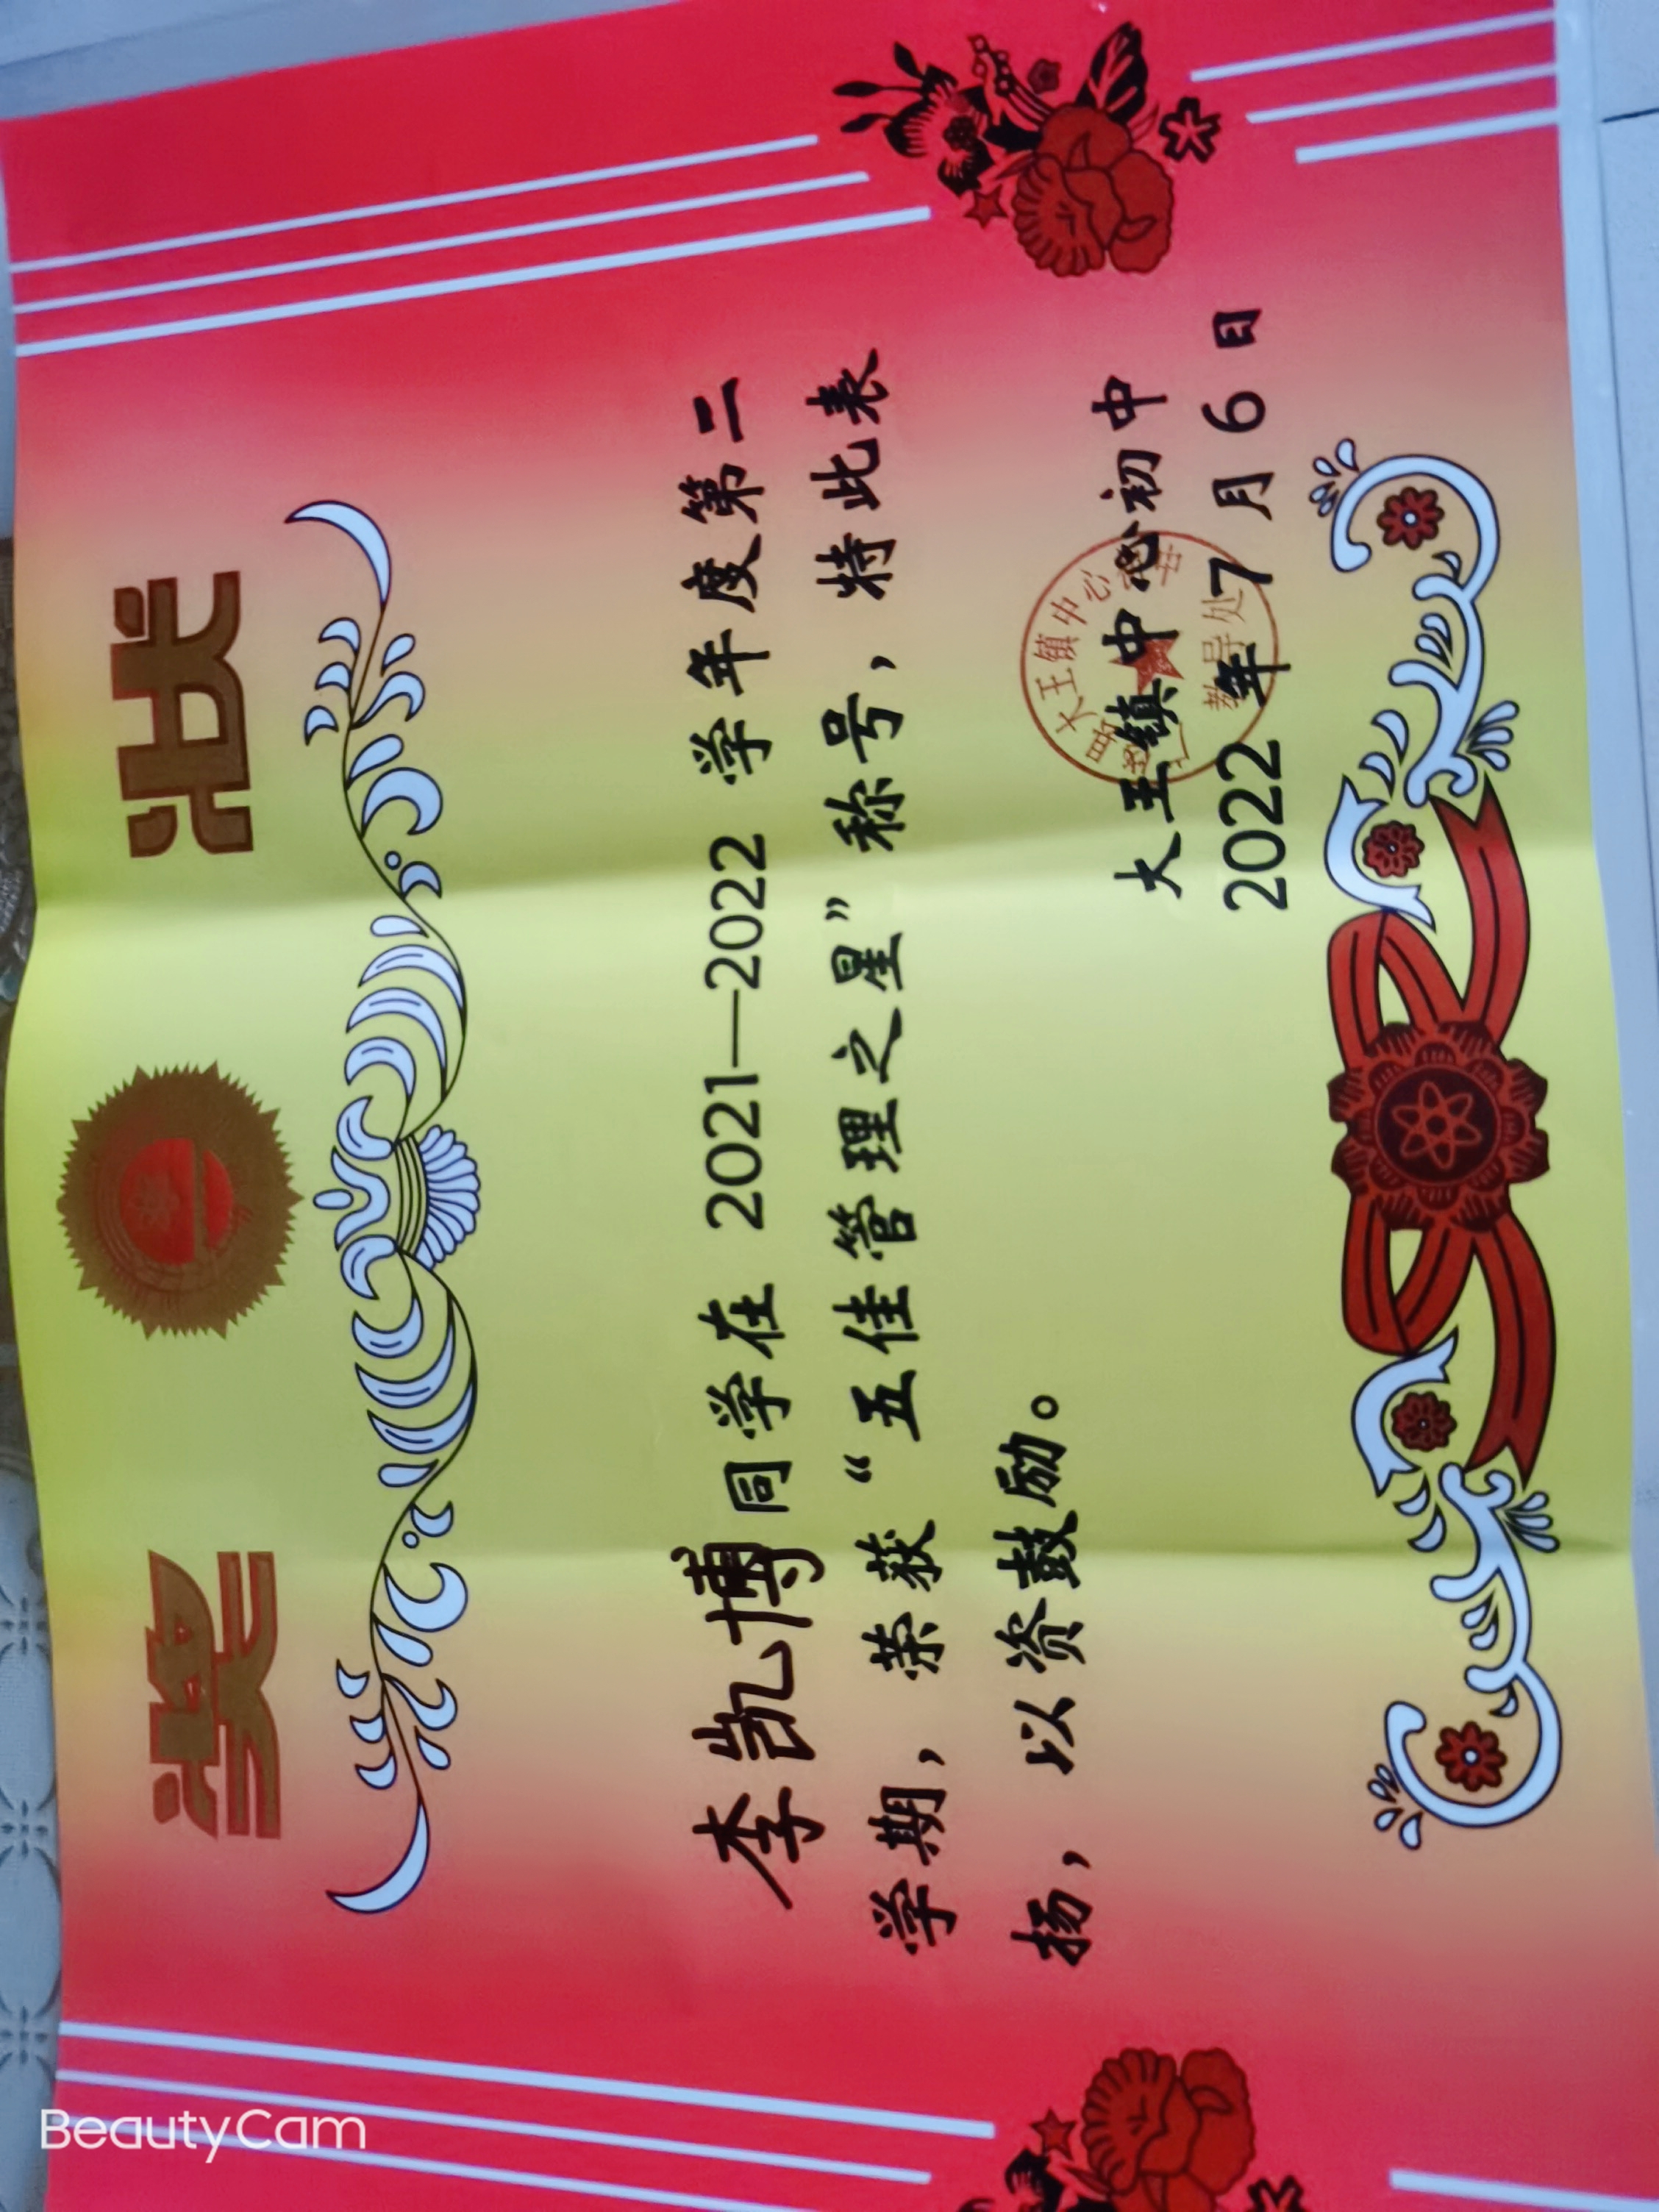 奖 状
李凯博同学在 2021—2022 学年度第二
学期，荣获“五佳管理之星”称号，特此表
扬，以资鼓励。
大王镇中心初中
2022 年 7 月 6 日
大王镇中心
教导处
BeautyCam